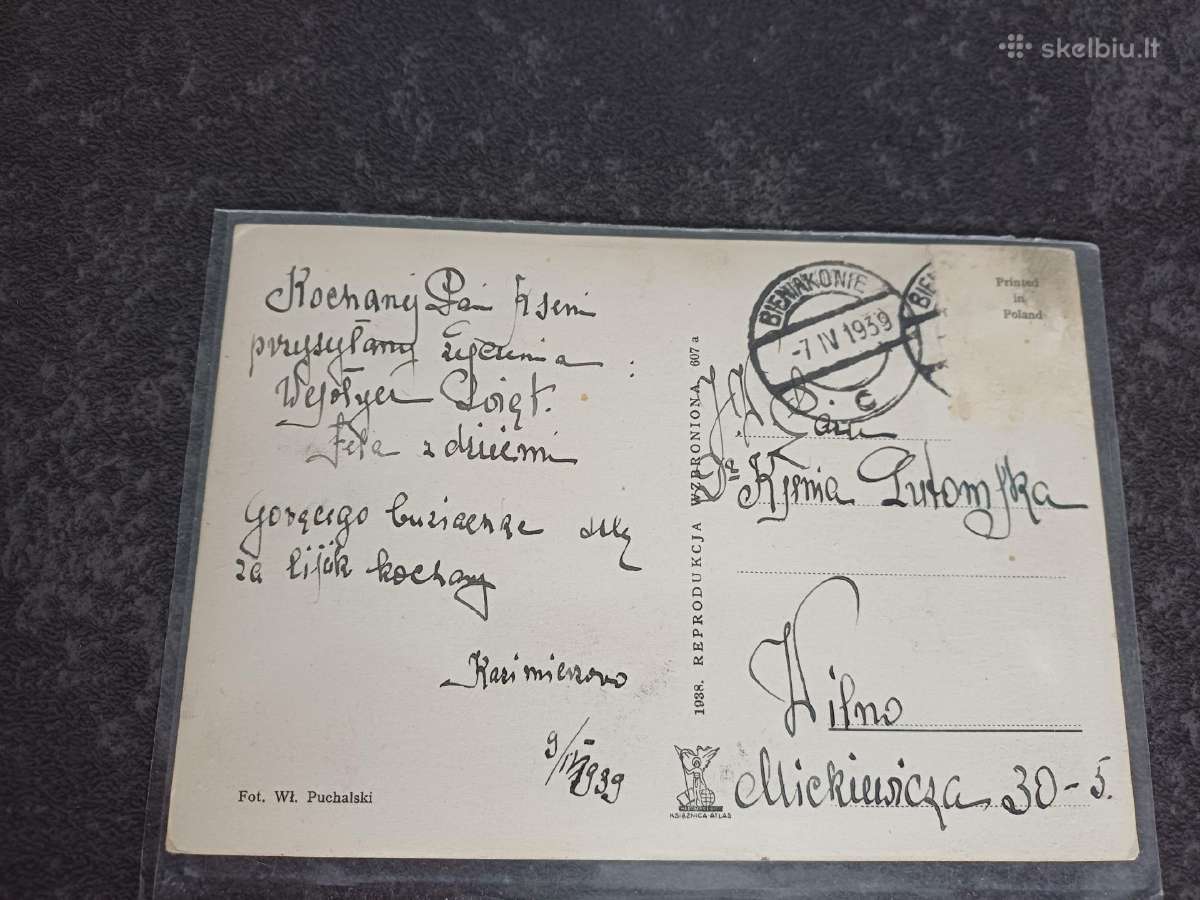 skelbiu.lt
Kochanej Pani Kseni
przysyłamy życzenia:
Wesołych Świąt.
Fela z dziećmi
Gorącego buziaczka
za kochany
Kazimierzowo
9/IV 1939
Fot. Wł. Puchalski
1938. REPRODUKCJA WZBRONIONA 607 a
KSIĄŻNICA-ATLAS
BIENIAKONIE
-7 IV 1939
c
BIEN
Printed
in
Poland
Pani
Dr Ksenia Lutomska
Wilno
Mickiewicza 30-5.